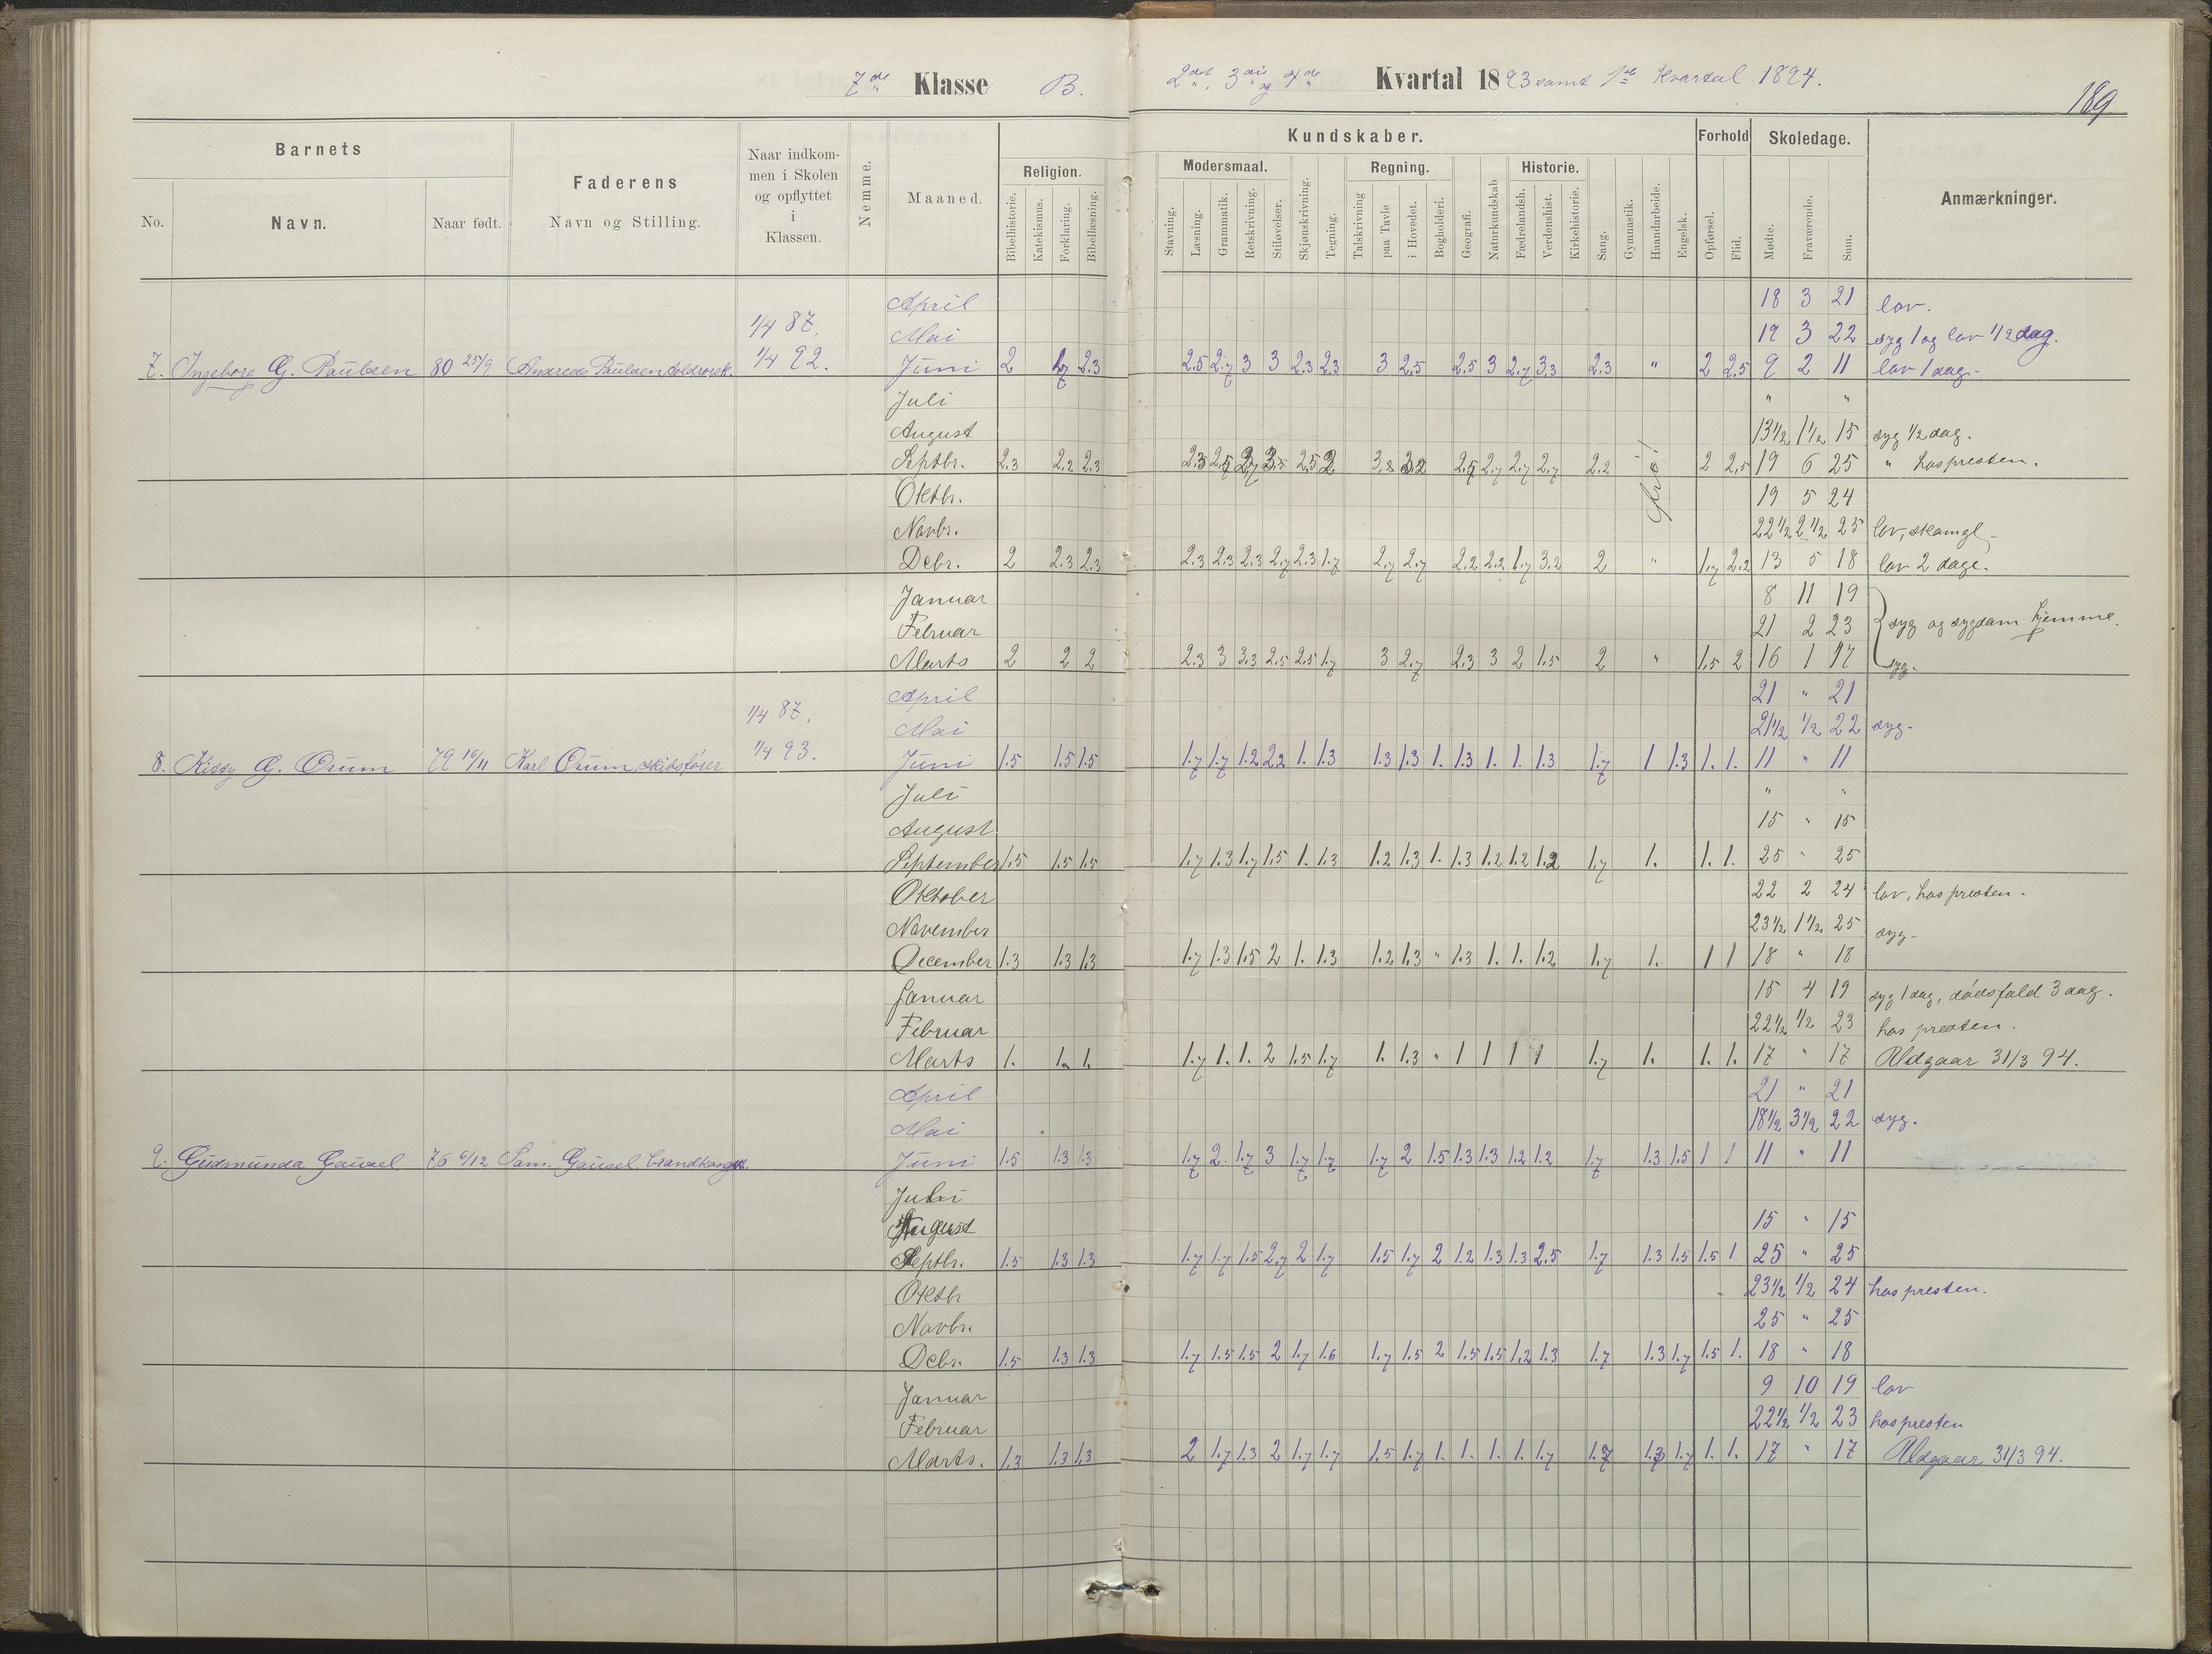 7de Klasse B. 2det, 3die og 4de Kvartal 1893 samt 1ste Kvartal 1894.
189
Barnets
Faderens
Naar indkommen i Skolen og opflyttet i Klassen.
Nemme.
Maaned.
Kundskaber.
Forhold
Skoledage.
Anmærkninger.
No. Navn. Naar født. Navn og Stilling.
Religion. Modersmaal. Regning. Historie.
Bibelhistorie. Katekismus. Forklaring. Bibellæsning. Stavning. Læsning. Grammatik. Retskrivning. Stiløvelser. Skjønskrivning. Tegning. Talskrivning paa Tavle i Hovedet. Bogholderi. Geografi. Naturkundskab Fædrelandsh. Verdenshist. Kirkehistorie. Sang. Gymnastik. Haandarbeide. Engelsk. Opførsel. Flid. Mødte. Fraværende. Sum.
April 18 3 21 lov.
1/4 87. Mai 19 3 22 syg 1 og lov 1/2 dag.
7. Ingeborg G. Paulsen 80 25/9 Andreas Paulsen toldrorsk. 1/4 92. Juni 2 1.7 2.3 2.5 2.7 3 3 2.3 2.3 3 2.5 2.5 3 2.7 3.3 2.3 " 2 2.5 9 2 11 lov 1 dag.
Juli " "
August 13 1/2 1 1/2 15 syg 1/2 dag.
Septbr. 2.3 2.2 2.3 2.3 2.5 2.7 3.5 2.5 2 3.2 3.2 2.5 2.7 2.7 2.7 2.2 fri! 2 2.5 19 6 25 " hos presten.
Oktbr. 19 5 24
Novbr. 22 1/2 2 1/2 25 lov,
Debr. 2 2.3 2.3 2.3 2.3 2.3 2.7 2.3 1.7 2.7 2.7 2.2 2.2 1.7 3.2 2 " 1.7 2.2 13 5 18 lov 2 dage.
Januar 8 11 19
Februar 21 2 23 syg og sygdom hjemme.
Marts 2 2 2 2.3 3 3.3 2.5 2.5 1.7 3 2.7 2.3 3 2 1.5 2 " 1.5 2 16 1 17 syg.
April 21 " 21
1/4 87. Mai 21 1/2 1/2 22 syg.
8. Kissy G. Orum 79 16/11 Karl Orum, skibsfører 1/4 93. Juni 1.5 1.5 1.5 1.7 1.7 1.2 2.2 1. 1.3 1.3 1.3 1. 1.3 1. 1. 1.3 1.7 1 1.3 1. 1. 11 " 11
Juli " "
August 15 " 15
September 1.5 1.5 1.5 1.7 1.3 1.7 1.5 1. 1.3 1.2 1.3 1. 1.3 1.2 1.2 1.2 1.7 1. 1. 1. 25 " 25
Oktober 22 2 24 lov, hos presten.
November 23 1/2 1 1/2 25 syg
December 1.3 1.3 1.3 1.7 1.3 1.5 2 1. 1.3 1.2 1.3 " 1.3 1. 1. 1.2 1.7 1. 1 1 18 " 18
Januar 15 4 19 syg 1 dag, dødsfald 3 dag.
Februar 22 1/2 1/2 23 hos presten.
Marts 1. 1. 1. 1.7 1. 1. 2 1.5 1.7 1. 1.3 " 1 1 1 1 1.7 1. 1. 1. 17 " 17 Udgaar 31/3 94.
April 21 " 21
Mai 18 1/2 3 1/2 22 syg.
9. Gudmunda Gausel 76 6/12 Sam. Gausel, Juni 1.5 1.3 1.3 1.7 2. 1.7 3 1.7 1.7 1.7 2 1.5 1.3 1.3 1.2 1.2 1.7 1.3 1.5 1 1 11 " 11
Juli
August 15 " 15
Septbr. 1.5 1.3 1.3 1.7 1.7 1.5 2.7 2 1.7 1.5 1.7 2 1.2 1.3 1.3 2.5 1.7 1.3 1.5 1.5 1. 25 " 25
Oktbr 23 1/2 1/2 24 hos presten.
Novbr. 25 " 25
Debr. 1.5 1.3 1.3 1.7 1.5 1.5 2 1.7 1.6 1.7 1.5 2 1.5 1.5 1.2 1.3 1.7 1.3 1.7 1.5 1. 18 " 18
Januar 9 10 19 lov
Februar 22 1/2 1/2 23 hos presten
Marts. 1.3 1.3 1.3 2 1.7 1.3 2 1.7 1.7 1.5 1.7 1. 1. 1. 1. 1.7 1.7 1.3 1.7 1. 1. 17 " 17 Udgaar 31/3 94.